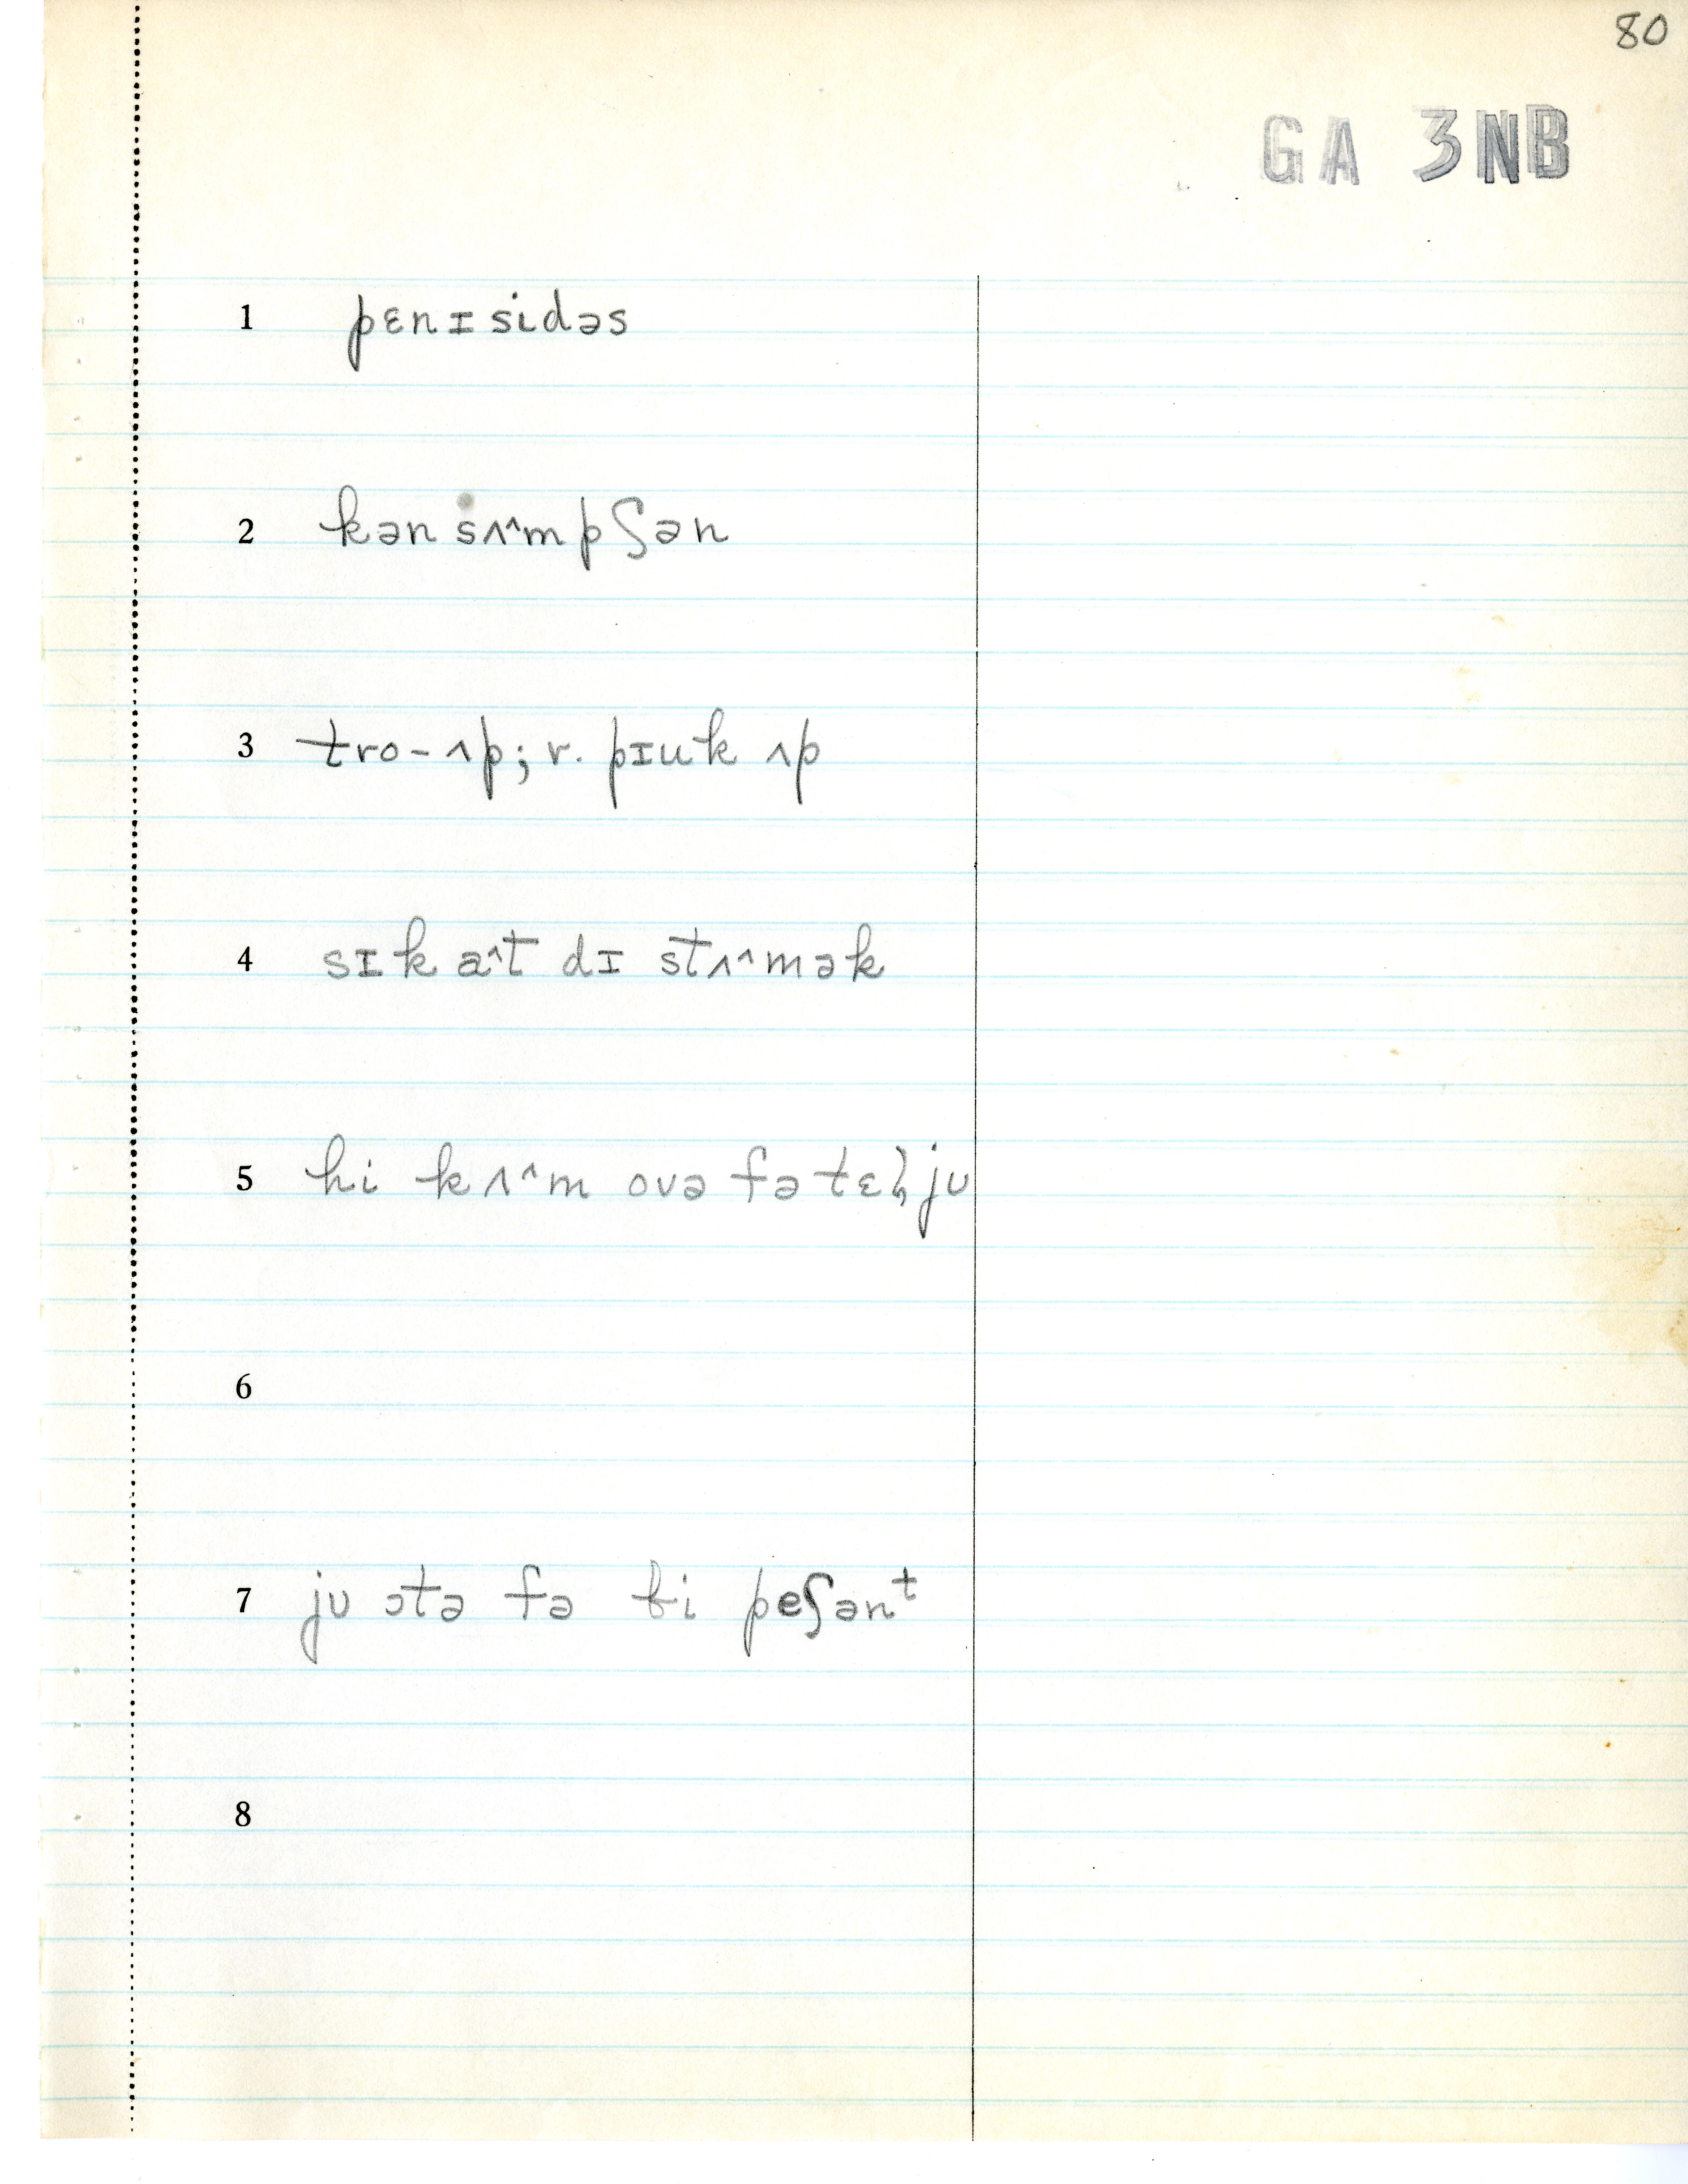 80
GA 3NB
1 pɛnɪsidəs
2 kənsʌ^mpʃən
3 tro-ʌp; r. pɪuk ʌp
4 sɪk a^t dɪ stʌ^mək
5 hi kʌ^m ovə fə ju
6
7 ju ɔtə fə bi peʃənᵗ
8